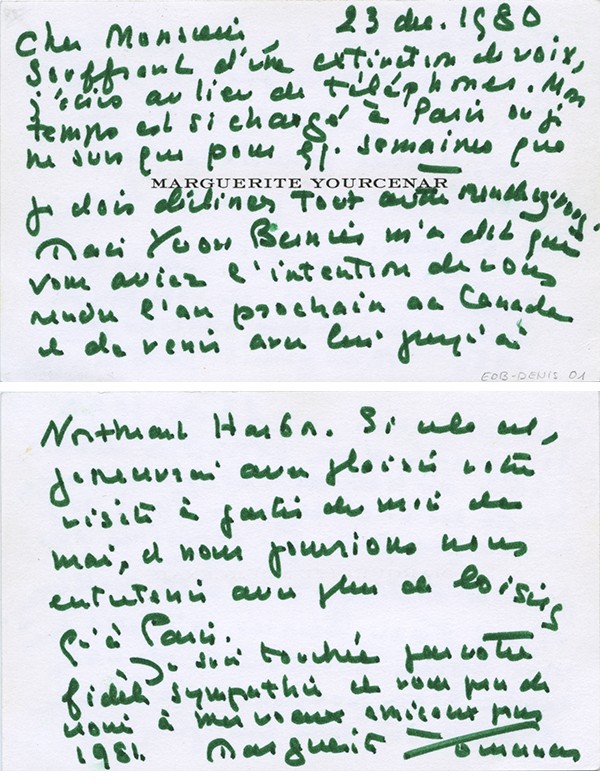 23 déc. 1980
Cher Monsieur
Souffrant d'une extinction de voix,
j'écris au lieu de téléphoner. Mon
temps est si chargé à Paris où je
ne suis que pour qq. semaines que
MARGUERITE YOURCENAR
je dois décliner tout autre rendez-vous.
Mais Yvon Bernier m'a dit que
vous aviez l'intention de vous
rendre l'an prochain au Canada
et de venir avec lui jusqu'à
EOB-DENIS 01
Northeast Harbor. Si cela est,
je recevrai avec plaisir votre
visite à partir du mois de
mai, et nous pourrions nous
entretenir avec plus de loisirs
qu'à Paris.
Je suis touchée par votre
fidèle sympathie et vous prie de
croire à mes vœux amicaux pour
1981. Marguerite Yourcenar